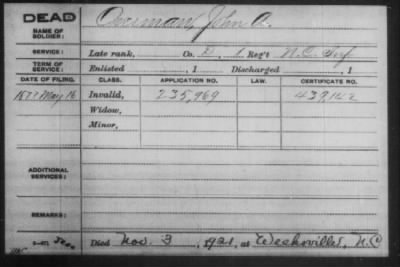 DEAD
NAME OF SOLDIER: Overman, John A.
SERVICE: Late rank, Co. D, 1 Reg't N.C. Inf
TERM OF SERVICE: Enlisted , 1 Discharged , 1
DATE OF FILING. CLASS. APPLICATION NO. LAW. CERTIFICATE NO.
1877 May 16 Invalid, 235,969 439,142
Widow,
Minor,
ADDITIONAL SERVICES:
REMARKS:
Died Nov. 3, 1921, at Weeksville, N.C